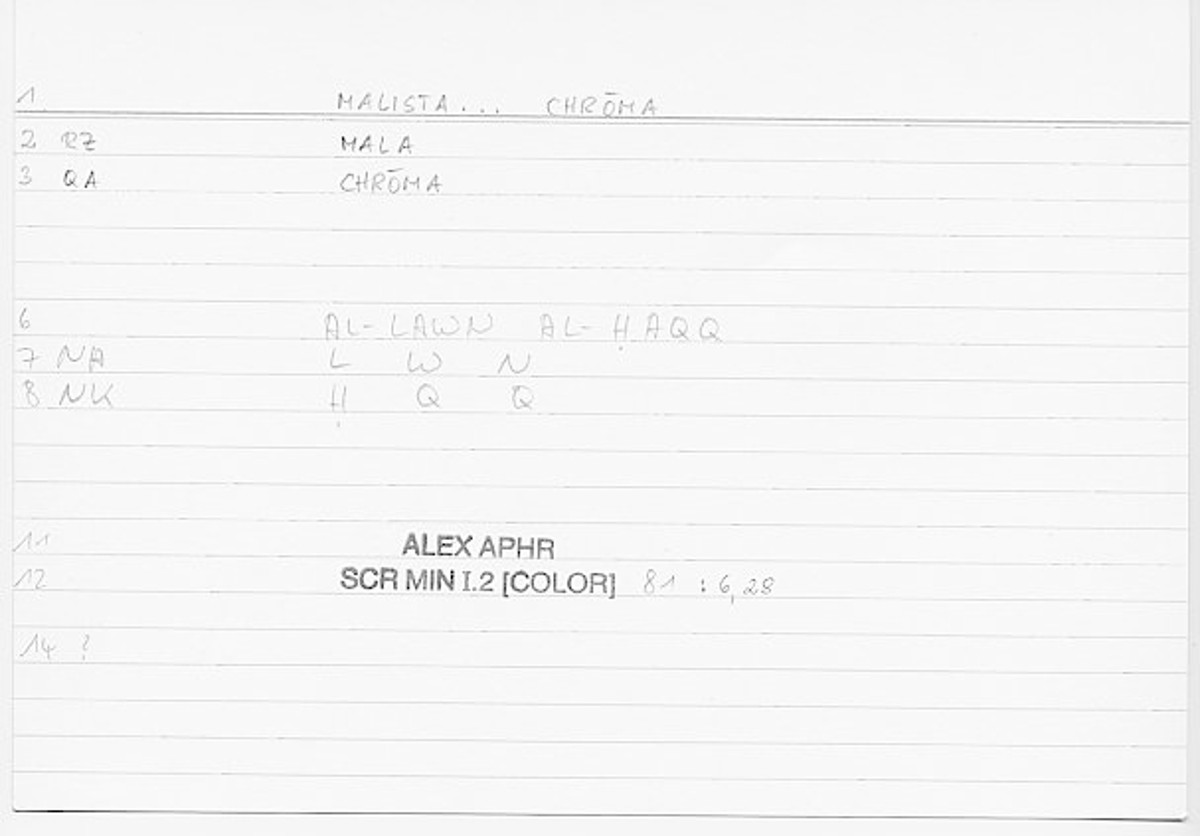 1 MALISTA... CHRŌMA
2 RZ MALA
3 QA CHRŌMA
6 AL-LAWN AL-ḤAQQ
7 NA L W N
8 NK Ḥ Q Q
11 ALEX APHR
12 SCR MIN I.2 [COLOR] 81 : 6,28
14 ?